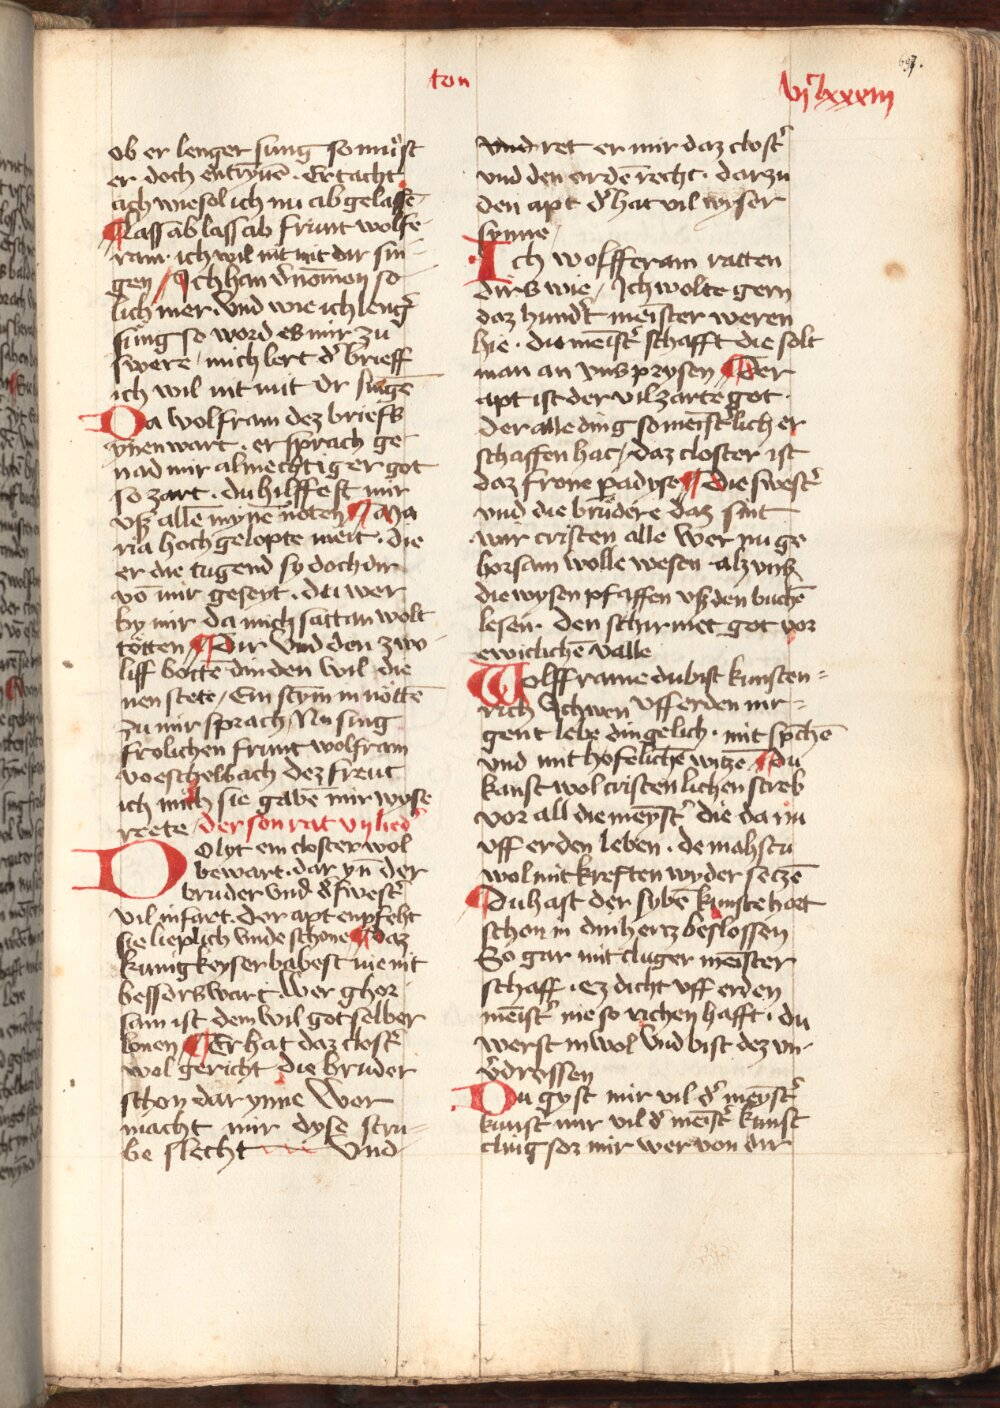 ton
vjclxxxiij
697.
ob er lenger sung so muͦst
er doch entrynnē. Er tacht
ach wie sol ich nu ab gelassē
lass ab lass ab frúnt wolfe
ram. ich wil nit mit dir sin
gen // Ich han v̄nomen so
lich mer. Vnd wie ich leng᷑
sung so word es mir zu
swere / mich lert d᷑ brieff
ich wil nit mit dir singē
Da wolfram dez briefs
ynnen wart. er sprach ge
nad mir almechtiger got
so zart. du hilffest mir
vß allē mynē nöten Ma
ria hochgelopte meit. die
er die tugend sy doch dir
vō mir geseyt. du wer
by mir da mich sattan wolt
tötten Dir vnd den zwo
liff botte͂ din den wil die
nen stete / Ein stym in nöttē
zu mir sprach / Nu sing
frolichen frúnt wolfram
vo eschelbach dez freut
ich mich sie gabē mir wyse
reete / der son rat vij lied᷑
Do lyt ein closter wol
bewart. dar yn̄ der
bruder vnd d᷑ swest᷑
vil infart. der apt enpfeht
sie lieplich vnde schone daz
kunig keyser babest nie nit
bessers wart. wer ghor
sam ist dem wil got selber
lonen Er hat daz clost᷑
wol gericht die bruder
schon dar ynne Wer
macht mir dyse stru=
be slecht Vnd
vnd ret er mir daz clost᷑
vnd den ordē recht. darzu
den apt d᷑ hat vil wyser
synne
Ich wolfferam ratten
dirs wie / Ich wolte gern
daz hund᷑t meister weren
hie. die meist᷑ schafft die solt
man an vns prysen Der
apt ist der vil zarte got.
der alle ding so meist᷑lich er
schaffen hat / daz closter ist
daz frone padyse die swest᷑
vnd die brüdere daz sint
wir cristen alle Wer nu ge
horsam wolle wesen alz vnß
die wysen pfaffen vß den buchē
lesen. den schirmet got vor
ewiclichē valle
Wolfframe du bist kunsten=
rich Ich wen vff erden nir=
gent lebe din gelich. mit sp̄chē
vnd mit hofelichē witzē Du
kanst wol cristenlichen streb
vor all die meyst᷑ die da nu
vff erden leben. de mahstu
wol mit kreften wyder setzē
Du hast der sybē kunste hort
schon in din hertz beslossen
So gar mit cluger meister
schaff. ez dicht vff erden
meist᷑ nie so richen hafft. du
werst in wol vnd bist dez vn=
v̄drossen
Du gyst mir vil d᷑ meyst᷑
kunst mir vil d᷑ meist᷑ kunst
cling soz mir wer von dir